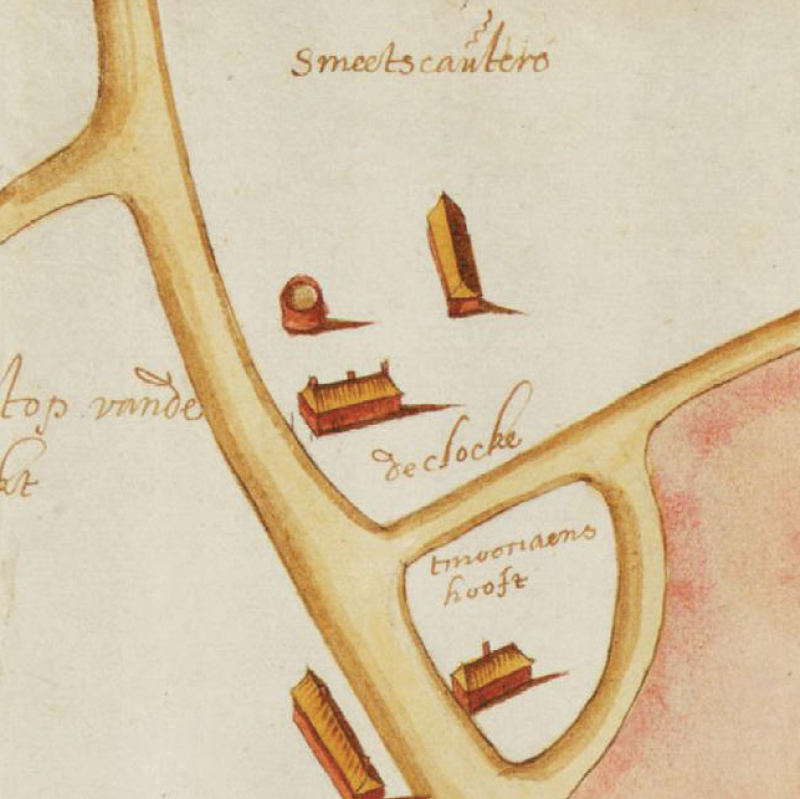 Smeetscautere
top vande
kt
de clocke
tmooriaens
hooft